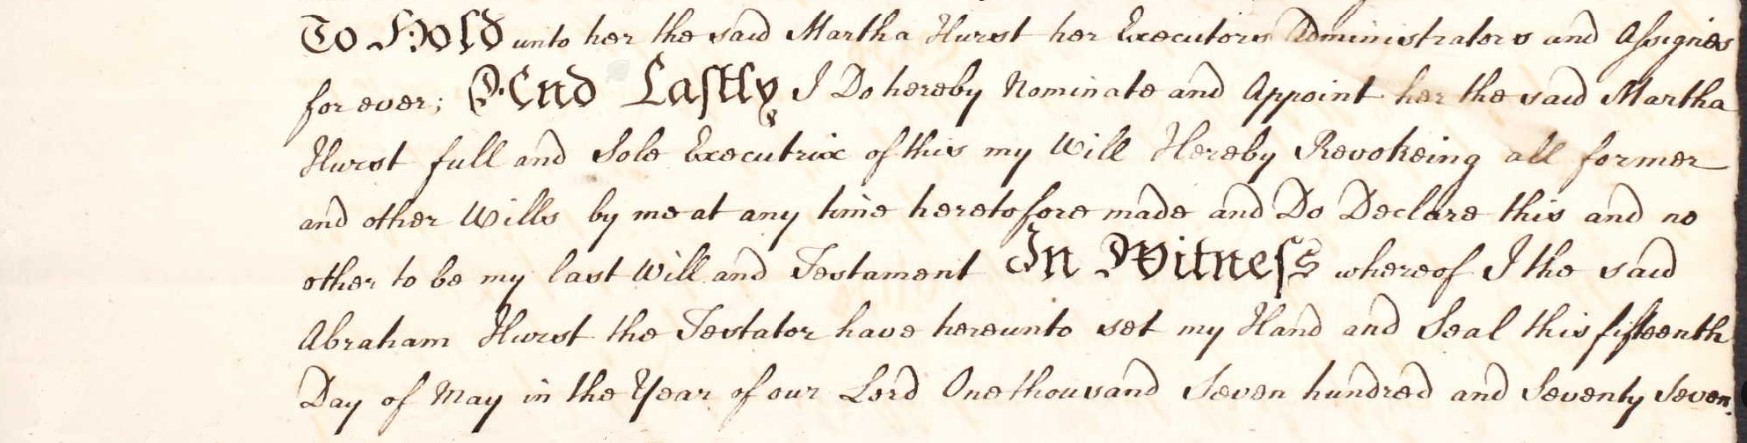 To Hold unto her the said Martha Hurst her Executors Administrators and Assignes
for ever; And Lastly I Do hereby Nominate and Appoint her the said Martha
Hurst full and Sole Executrix of this my Will Hereby Revokeing all former
and other Wills by me at any time heretofore made and Do Declare this and no
other to be my last Will and Testament In Witness whereof I the said
Abraham Hurst the Testator have hereunto set my Hand and Seal this fifteenth
Day of May in the Year of our Lord One thousand Seven hundred and Seventy Seven.